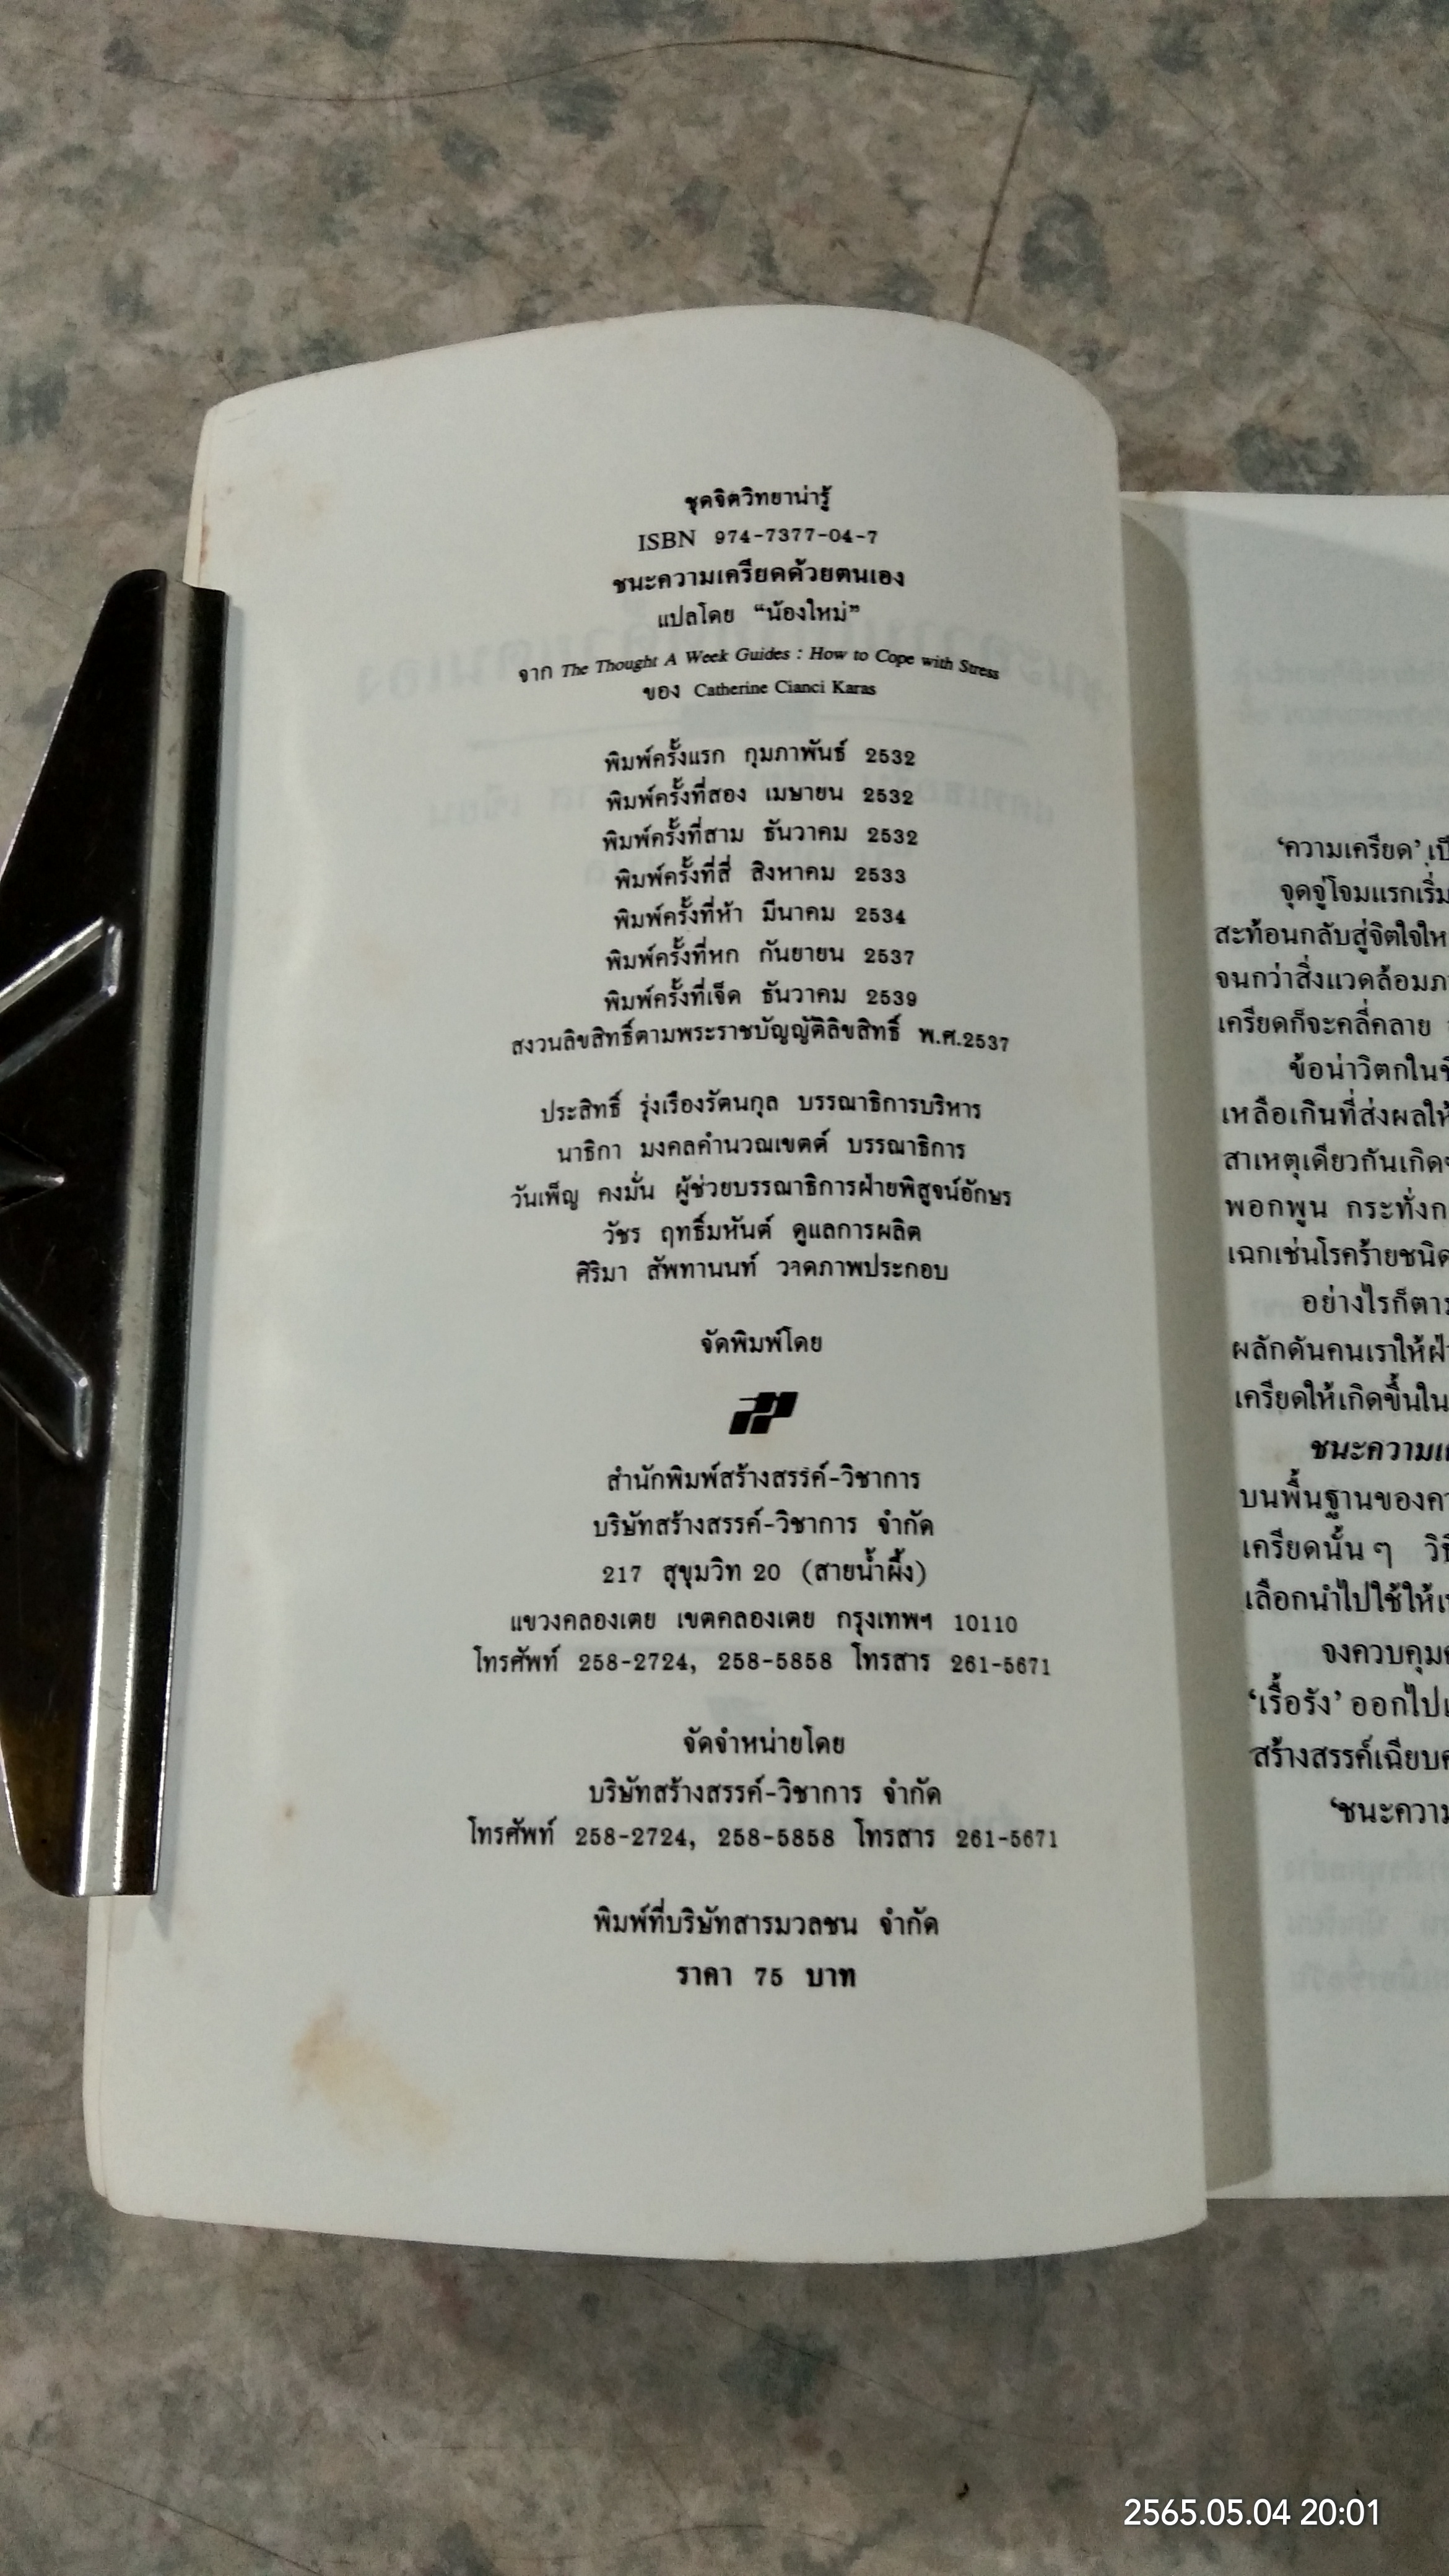 ชุดจิตวิทยาน่ารู้
ISBN 974-7377-04-7
ชนะความเครียดด้วยตนเอง
แปลโดย “น้องใหม่”
จาก The Thought A Week Guides : How to Cope with Stress
ของ Catherine Cianci Karas
พิมพ์ครั้งแรก กุมภาพันธ์ 2532
พิมพ์ครั้งที่สอง เมษายน 2532
พิมพ์ครั้งที่สาม ธันวาคม 2532
พิมพ์ครั้งที่สี่ สิงหาคม 2533
พิมพ์ครั้งที่ห้า มีนาคม 2534
พิมพ์ครั้งที่หก กันยายน 2537
พิมพ์ครั้งที่เจ็ด ธันวาคม 2539
สงวนลิขสิทธิ์ตามพระราชบัญญัติลิขสิทธิ์ พ.ศ.2537
ประสิทธิ์ รุ่งเรืองรัตนกุล บรรณาธิการบริหาร
นาธิกา มงคลคำนวณเขตต์ บรรณาธิการ
วันเพ็ญ คงมั่น ผู้ช่วยบรรณาธิการฝ่ายพิสูจน์อักษร
วัชร ฤทธิ์มหันต์ ดูแลการผลิต
ศิริมา สัพทานนท์ วาดภาพประกอบ
จัดพิมพ์โดย
สำนักพิมพ์สร้างสรรค์-วิชาการ
บริษัทสร้างสรรค์-วิชาการ จำกัด
217 สุขุมวิท 20 (สายน้ำผึ้ง)
แขวงคลองเตย เขตคลองเตย กรุงเทพฯ 10110
โทรศัพท์ 258-2724, 258-5858 โทรสาร 261-5671
จัดจำหน่ายโดย
บริษัทสร้างสรรค์-วิชาการ จำกัด
โทรศัพท์ 258-2724, 258-5858 โทรสาร 261-5671
พิมพ์ที่บริษัทสารมวลชน จำกัด
ราคา 75 บาท
‘ความเครียด’ เป็
จุดจู่โจมแรกเริ่ม
สะท้อนกลับสู่จิตใจให
จนกว่าสิ่งแวดล้อมภ
เครียดก็จะคลี่คลาย
ข้อน่าวิตกในชี
เหลือเกินที่ส่งผลให้
สาเหตุเดียวกันเกิด
พอกพูน กระทั่งก
เฉกเช่นโรคร้ายชนิด
อย่างไรก็ตาม
ผลักดันคนเราให้ฝ่
เครียดให้เกิดขึ้นใน
ชนะความเค
บนพื้นฐานของคว
เครียดนั้น ๆ วิธี
เลือกนำไปใช้ให้เห
จงควบคุมค
‘เรื้อรัง’ ออกไป
สร้างสรรค์เฉียบค
‘ชนะความ
2565.05.04 20:01